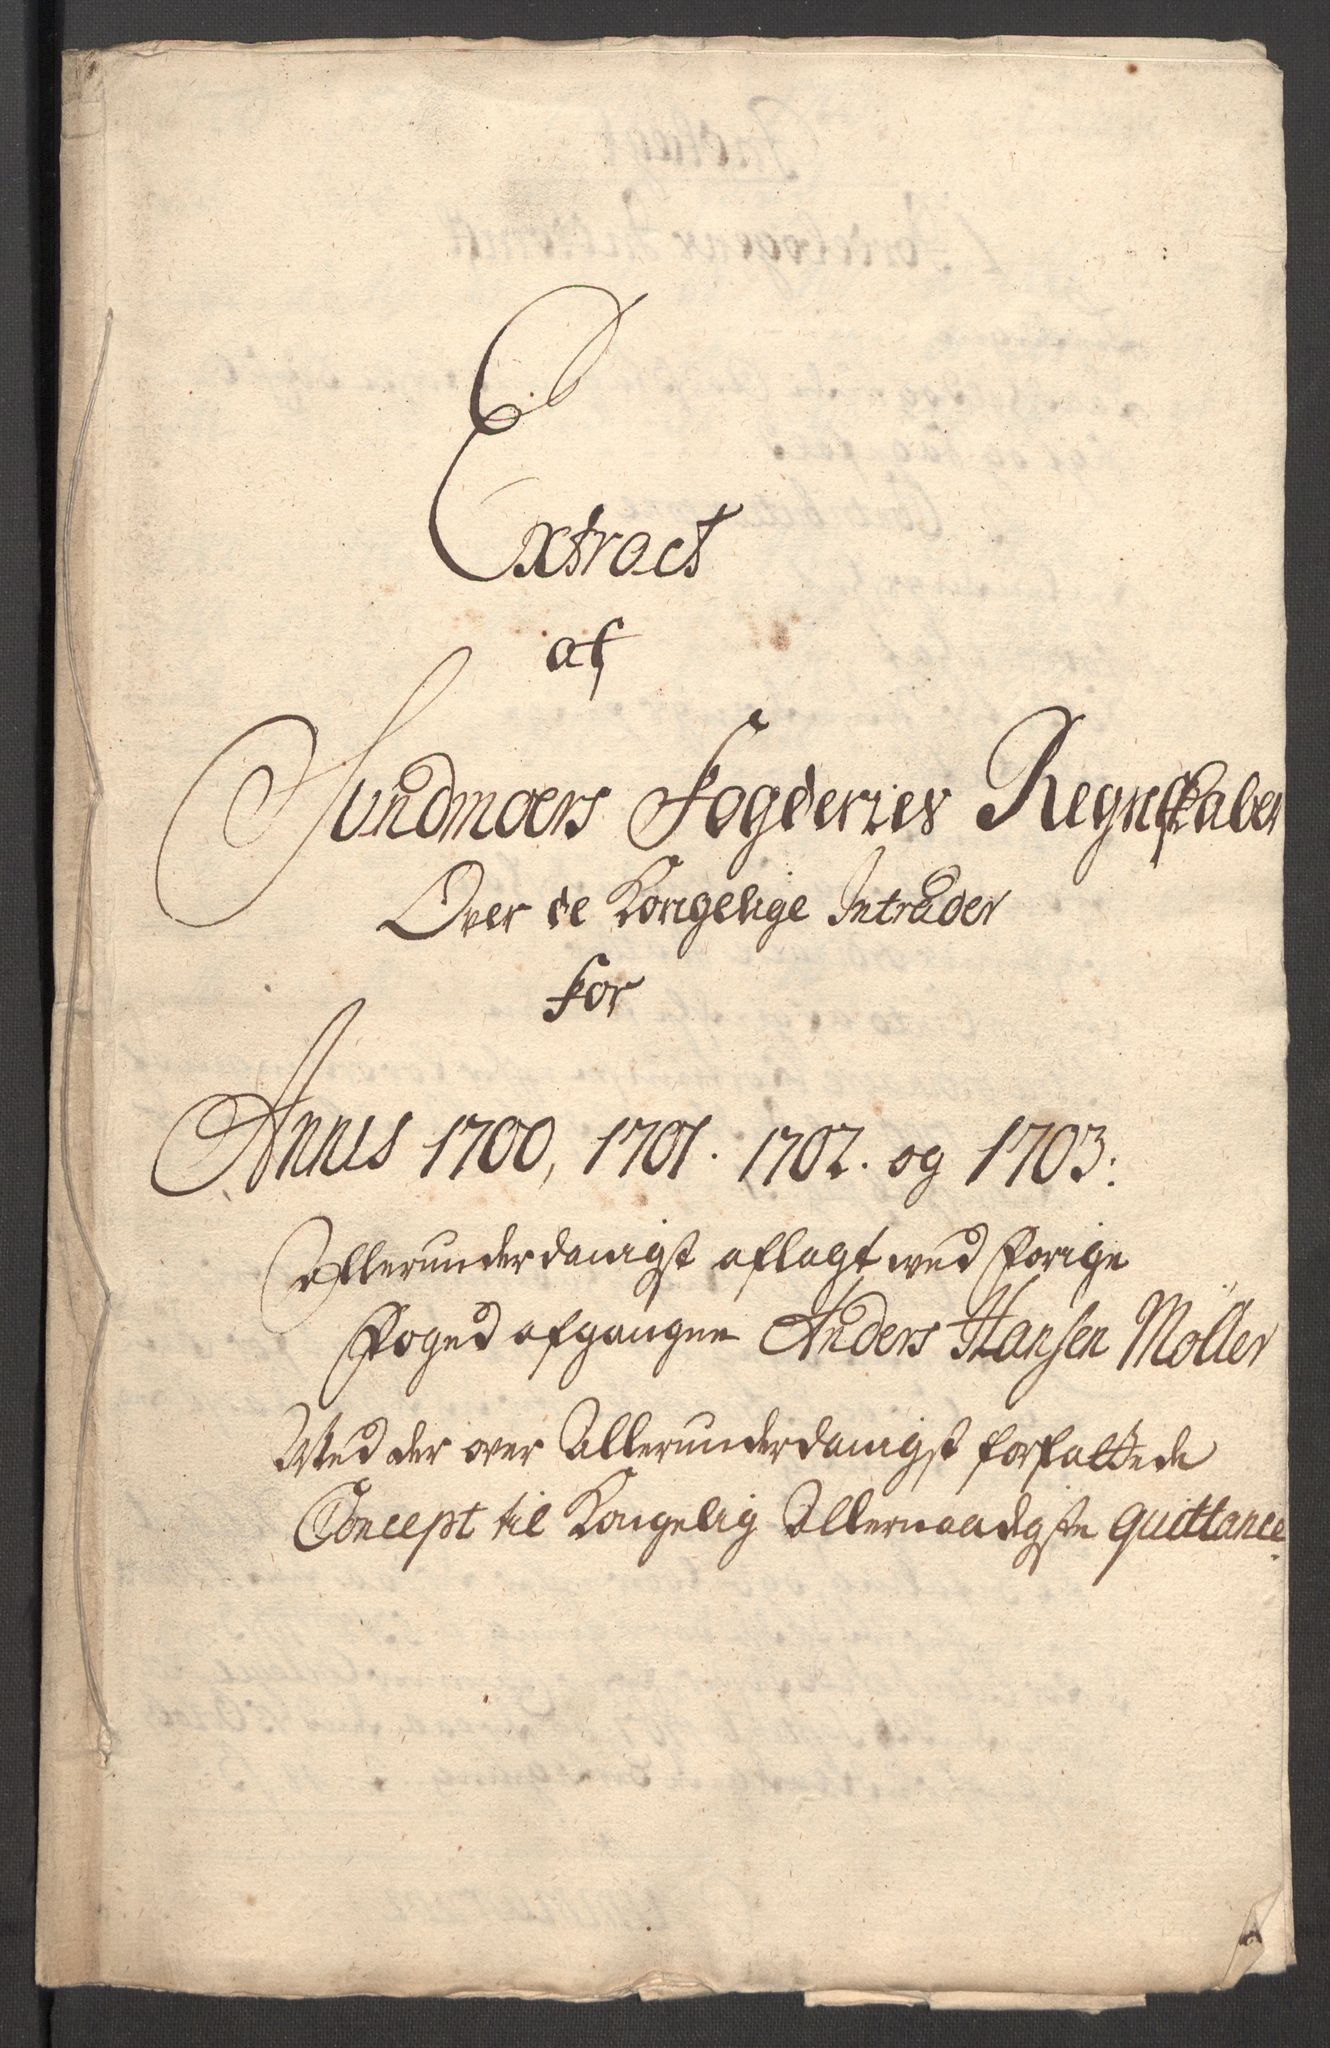 Extract
af
Sundmoers Fogderies Regnskaber
Over de Kongelige Intrader
for
Annis 1700, 1701. 1702. og 1703:
Allerunderdanigst aflagt ved forige
Foged afgangne Anders Hansen Møller
Med der over Allerunderdanigst forfattede
Concept til Kongelig Allernaadigste quittance.